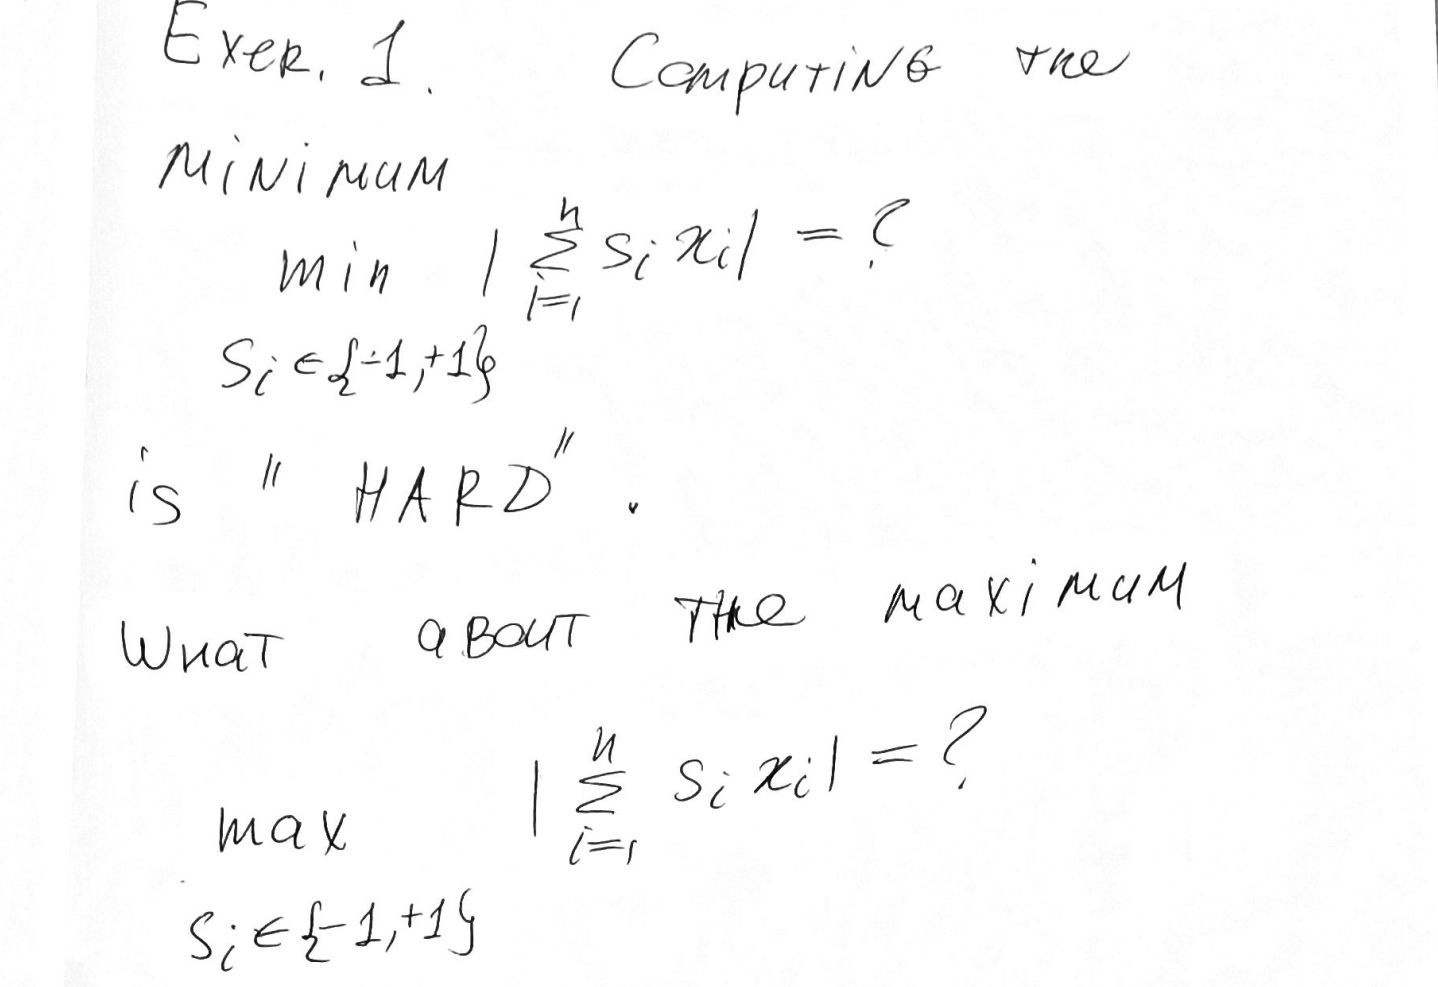 Exer. 1. Computing the
minimum
min | n∑i=1 si xi | = ?
si ∈ {-1,+1}
is "HARD".
What about the maximum
max | n∑i=1 si xi | = ?
si ∈ {-1,+1}